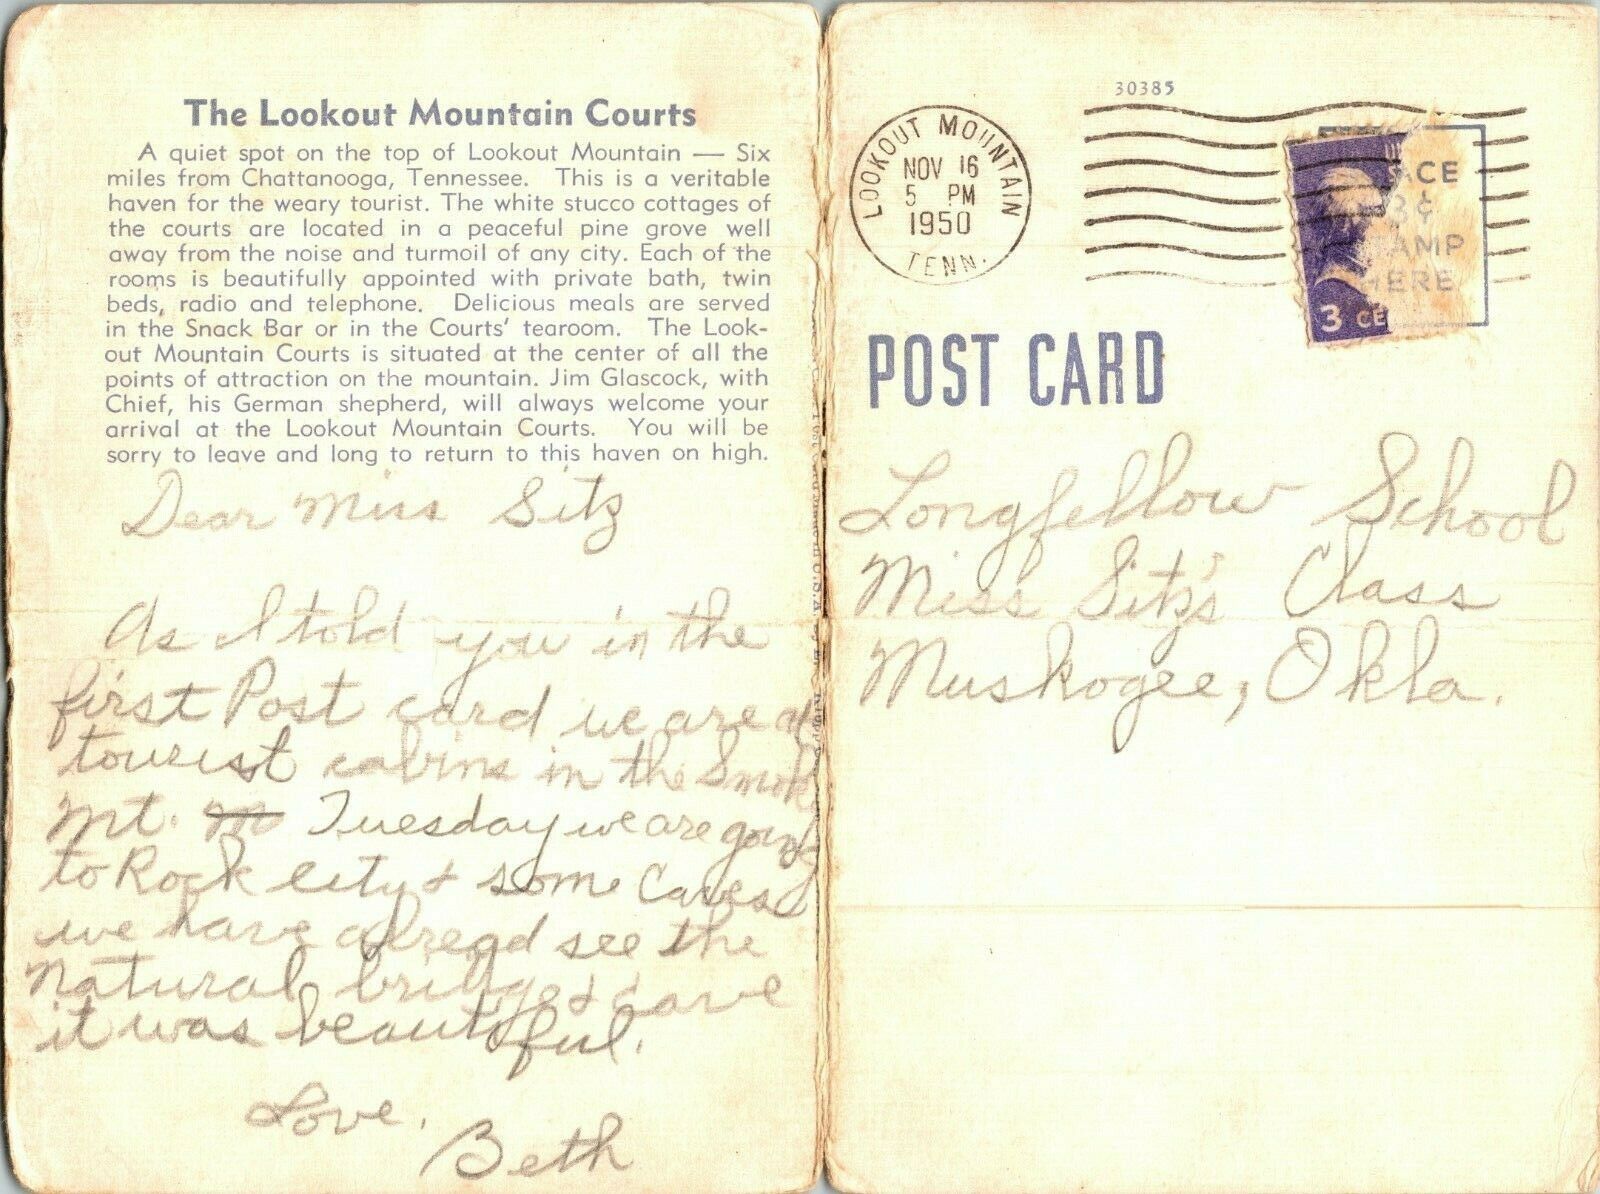 The Lookout Mountain Courts
A quiet spot on the top of Lookout Mountain — Six
miles from Chattanooga, Tennessee. This is a veritable
haven for the weary tourist. The white stucco cottages of
the courts are located in a peaceful pine grove well
away from the noise and turmoil of any city. Each of the
rooms is beautifully appointed with private bath, twin
beds, radio and telephone. Delicious meals are served
in the Snack Bar or in the Courts' tearoom. The Look-
out Mountain Courts is situated at the center of all the
points of attraction on the mountain. Jim Glascock, with
Chief, his German shepherd, will always welcome your
arrival at the Lookout Mountain Courts. You will be
sorry to leave and long to return to this haven on high.
Dear Miss Sitz
As I told you in the
first Post card we are at
tourist cabins in the Smok
Mt. Tuesday we are going
to Rock city & some Caves
we have alread see the
Natural bridge & cave
it was beautiful.
Love,
Beth
30385
LOOKOUT MOUNTAIN
NOV 16
5 PM
1950
TENN.
ACE
3¢
TAMP
HERE
3 CE
POST CARD
Longfellow School
Miss Sitz's Class
Muskogee, Okla.